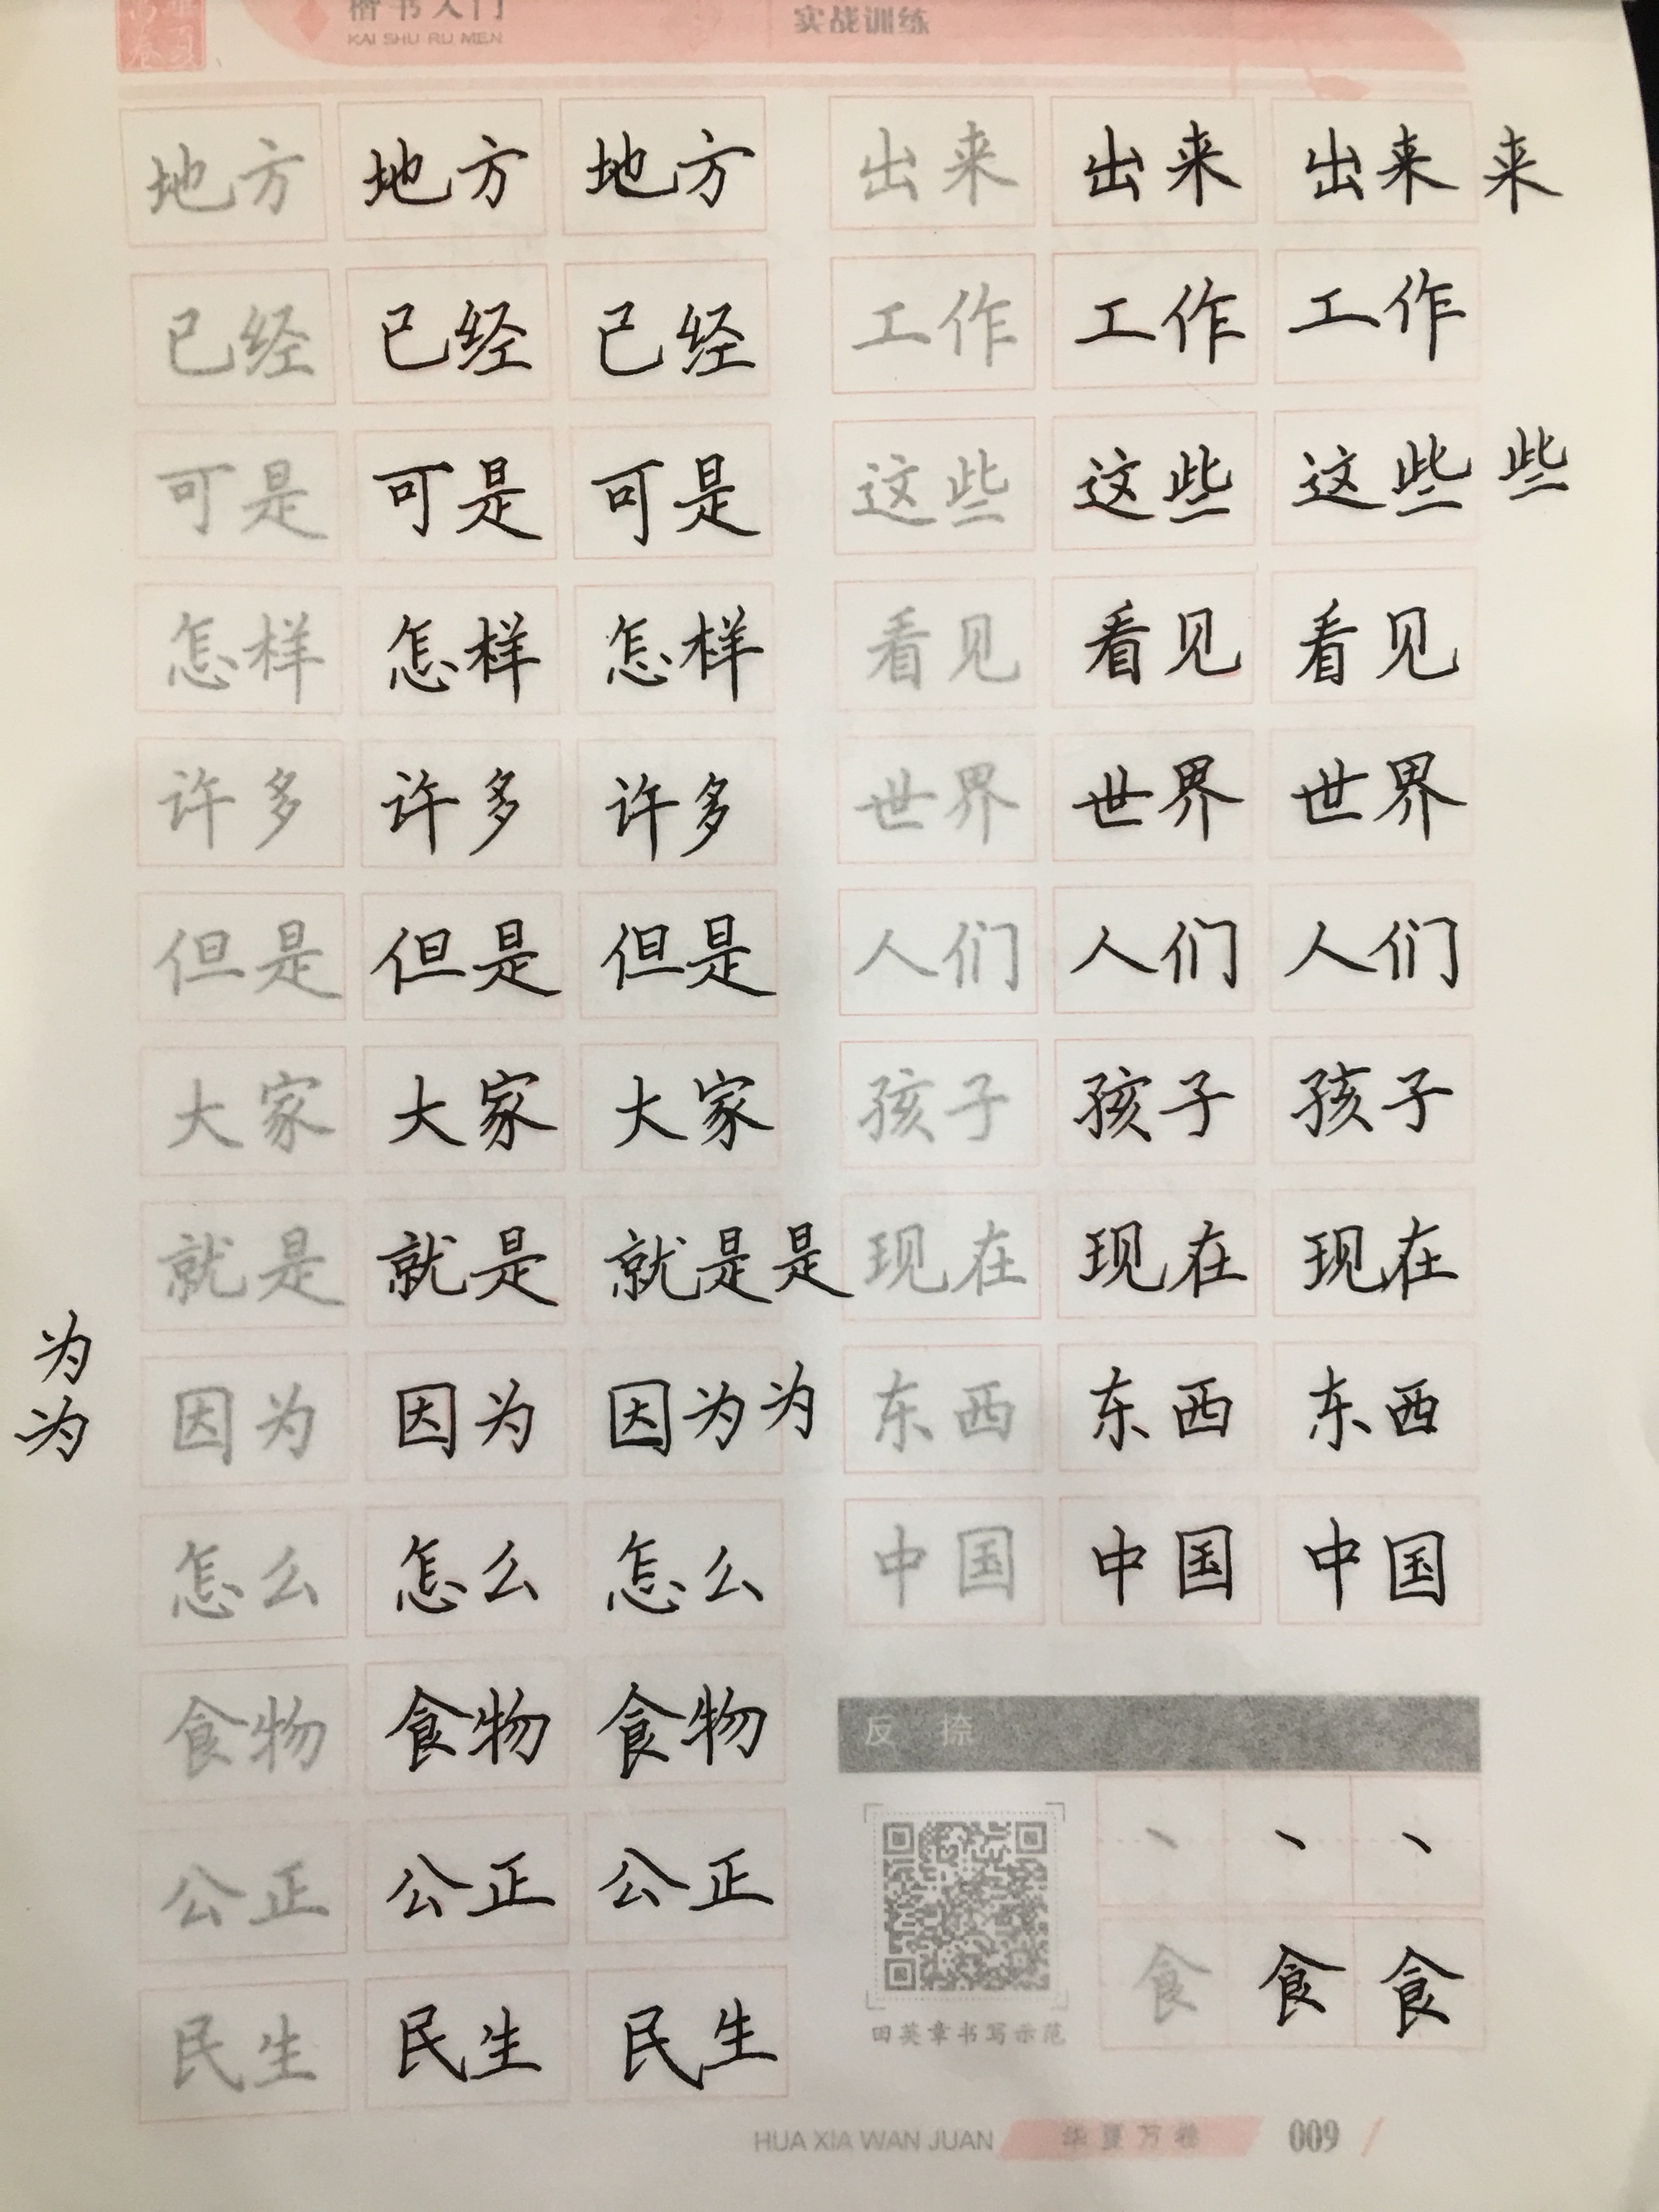 楷书入门
KAI SHU RU MEN
实战训练
地方 地方 地方
已经 已经 已经
可是 可是 可是
怎样 怎样 怎样
许多 许多 许多
但是 但是 但是
大家 大家 大家
就是 就是 就是是
为
为
因为 因为 因为为
怎么 怎么 怎么
食物 食物 食物
公正 公正 公正
民生 民生 民生
出来 出来 出来 来
工作 工作 工作
这些 这些 这些 些
看见 看见 看见
世界 世界 世界
人们 人们 人们
孩子 孩子 孩子
现在 现在 现在
东西 东西 东西
中国 中国 中国
反 捺
㇏ ㇏ ㇏
食 食 食
田英章书写示范
HUA XIA WAN JUAN 华夏万卷 009 /